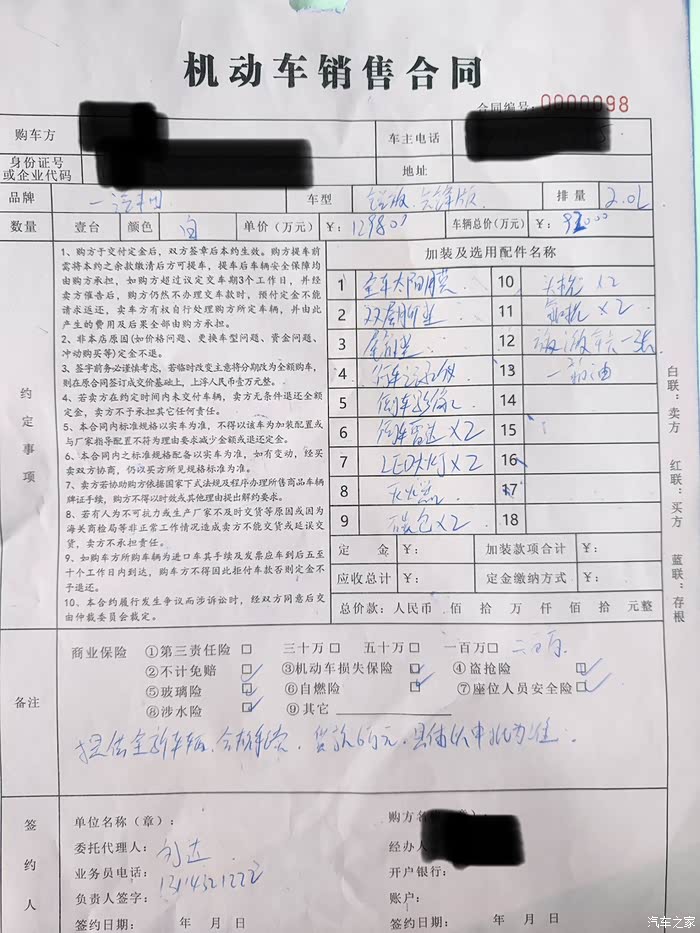 机动车销售合同
合同编号：0000098
购车方 车主电话
身份证号 或企业代码 地址
品牌 一汽丰田 车型 锐放 先锋版 排量 2.0L
数量 壹台 颜色 白 单价（万元） ￥：129800 车辆总价(万元) ￥：
约定事项
1、购方于交付定金后，双方签章后本约生效。购方提车前
需将本约之余款缴清后方可提车，提车后车辆安全保障均
由购方承担，如购方超过议定交车期3个工作日，并经
卖方催告后，购方仍然不办理交车款时，预付定金不能
请求返还，卖方有权自行处理购方所定车辆，并由此
产生的费用及后果全部由购方承担。
2、非本店原因(如价格问题、更换车型问题、资金问题、
冲动购买等)定金不退。
3、签字前务必谨慎考虑，若临时改变主意将分期改为全额购车，
则在原合同签订成交价基础上，上浮人民币壹万元整。
4、若卖方在约定时间内未交付车辆，卖方无条件退还全额
定金，卖方不予承担其它任何责任。
5、本合同内标准规格以实车为准，不得以该车为加装配置或
与厂家指导配置不符为理由要求减少金额或退还定金。
6、本合同内之标准规格配备以实车为准，如有变动，经买
卖双方协商，仍以买方所见规格标准为准。
7、卖方若协助购方依据国家下式法规及程序办理所售商品车辆
牌证手续，购方不得以时效或其他理由提出解约要求。
8、若有人为不可抗力或生产厂家不及时交货等原因或因为
海关商检局等非正常工作情况造成卖方不能交货或延误交
货，卖方不承担责任。
9、如购车方所购车辆为进口车其手续及发票应车到后五至
十个工作日内到达，购车方不得因此拒付车款否则定金不
予退还。
10、本合约履行发生争议而涉诉讼时，经双方同意后交
由仲裁委员会裁定。
加装及选用配件名称
1 全车太阳膜 10 头枕×2
2 双层脚垫 11 ×2
3 尾箱垫 12
4 行车记录仪 13 一箱油
5 倒车影像 14
6 倒车雷达×2 15
7 LED大灯×2 16
8 灭火器 17
9 ×2 18
定 金 ￥： 加装款项合计 ￥：
应收总计 ￥： 定金缴纳方式 ￥：
总价款：人民币 佰 拾 万 仟 佰 拾 元整
白联：卖方 红联：买方 蓝联：存根
备注
商业保险 ①第三责任险 □ 三十万□ 五十万□ 一百万□ 二百万
②不计免赔 □ ③机动车损失保险 □ ④盗抢险 □
⑤玻璃险 □ ⑥自燃险 □ ⑦座位人员安全险□
⑧涉水险 □ ⑨其它
提供全新车辆，合格手续，贷款6万元，具体以申批为准。
签约人
单位名称（章）： 购方名称（章）：
委托代理人：刘达 经办人
业务员电话：13114521222 开户银行：
负责人签字： 账户：
签约日期： 年 月 日 签约日期： 年 月 日
汽车之家